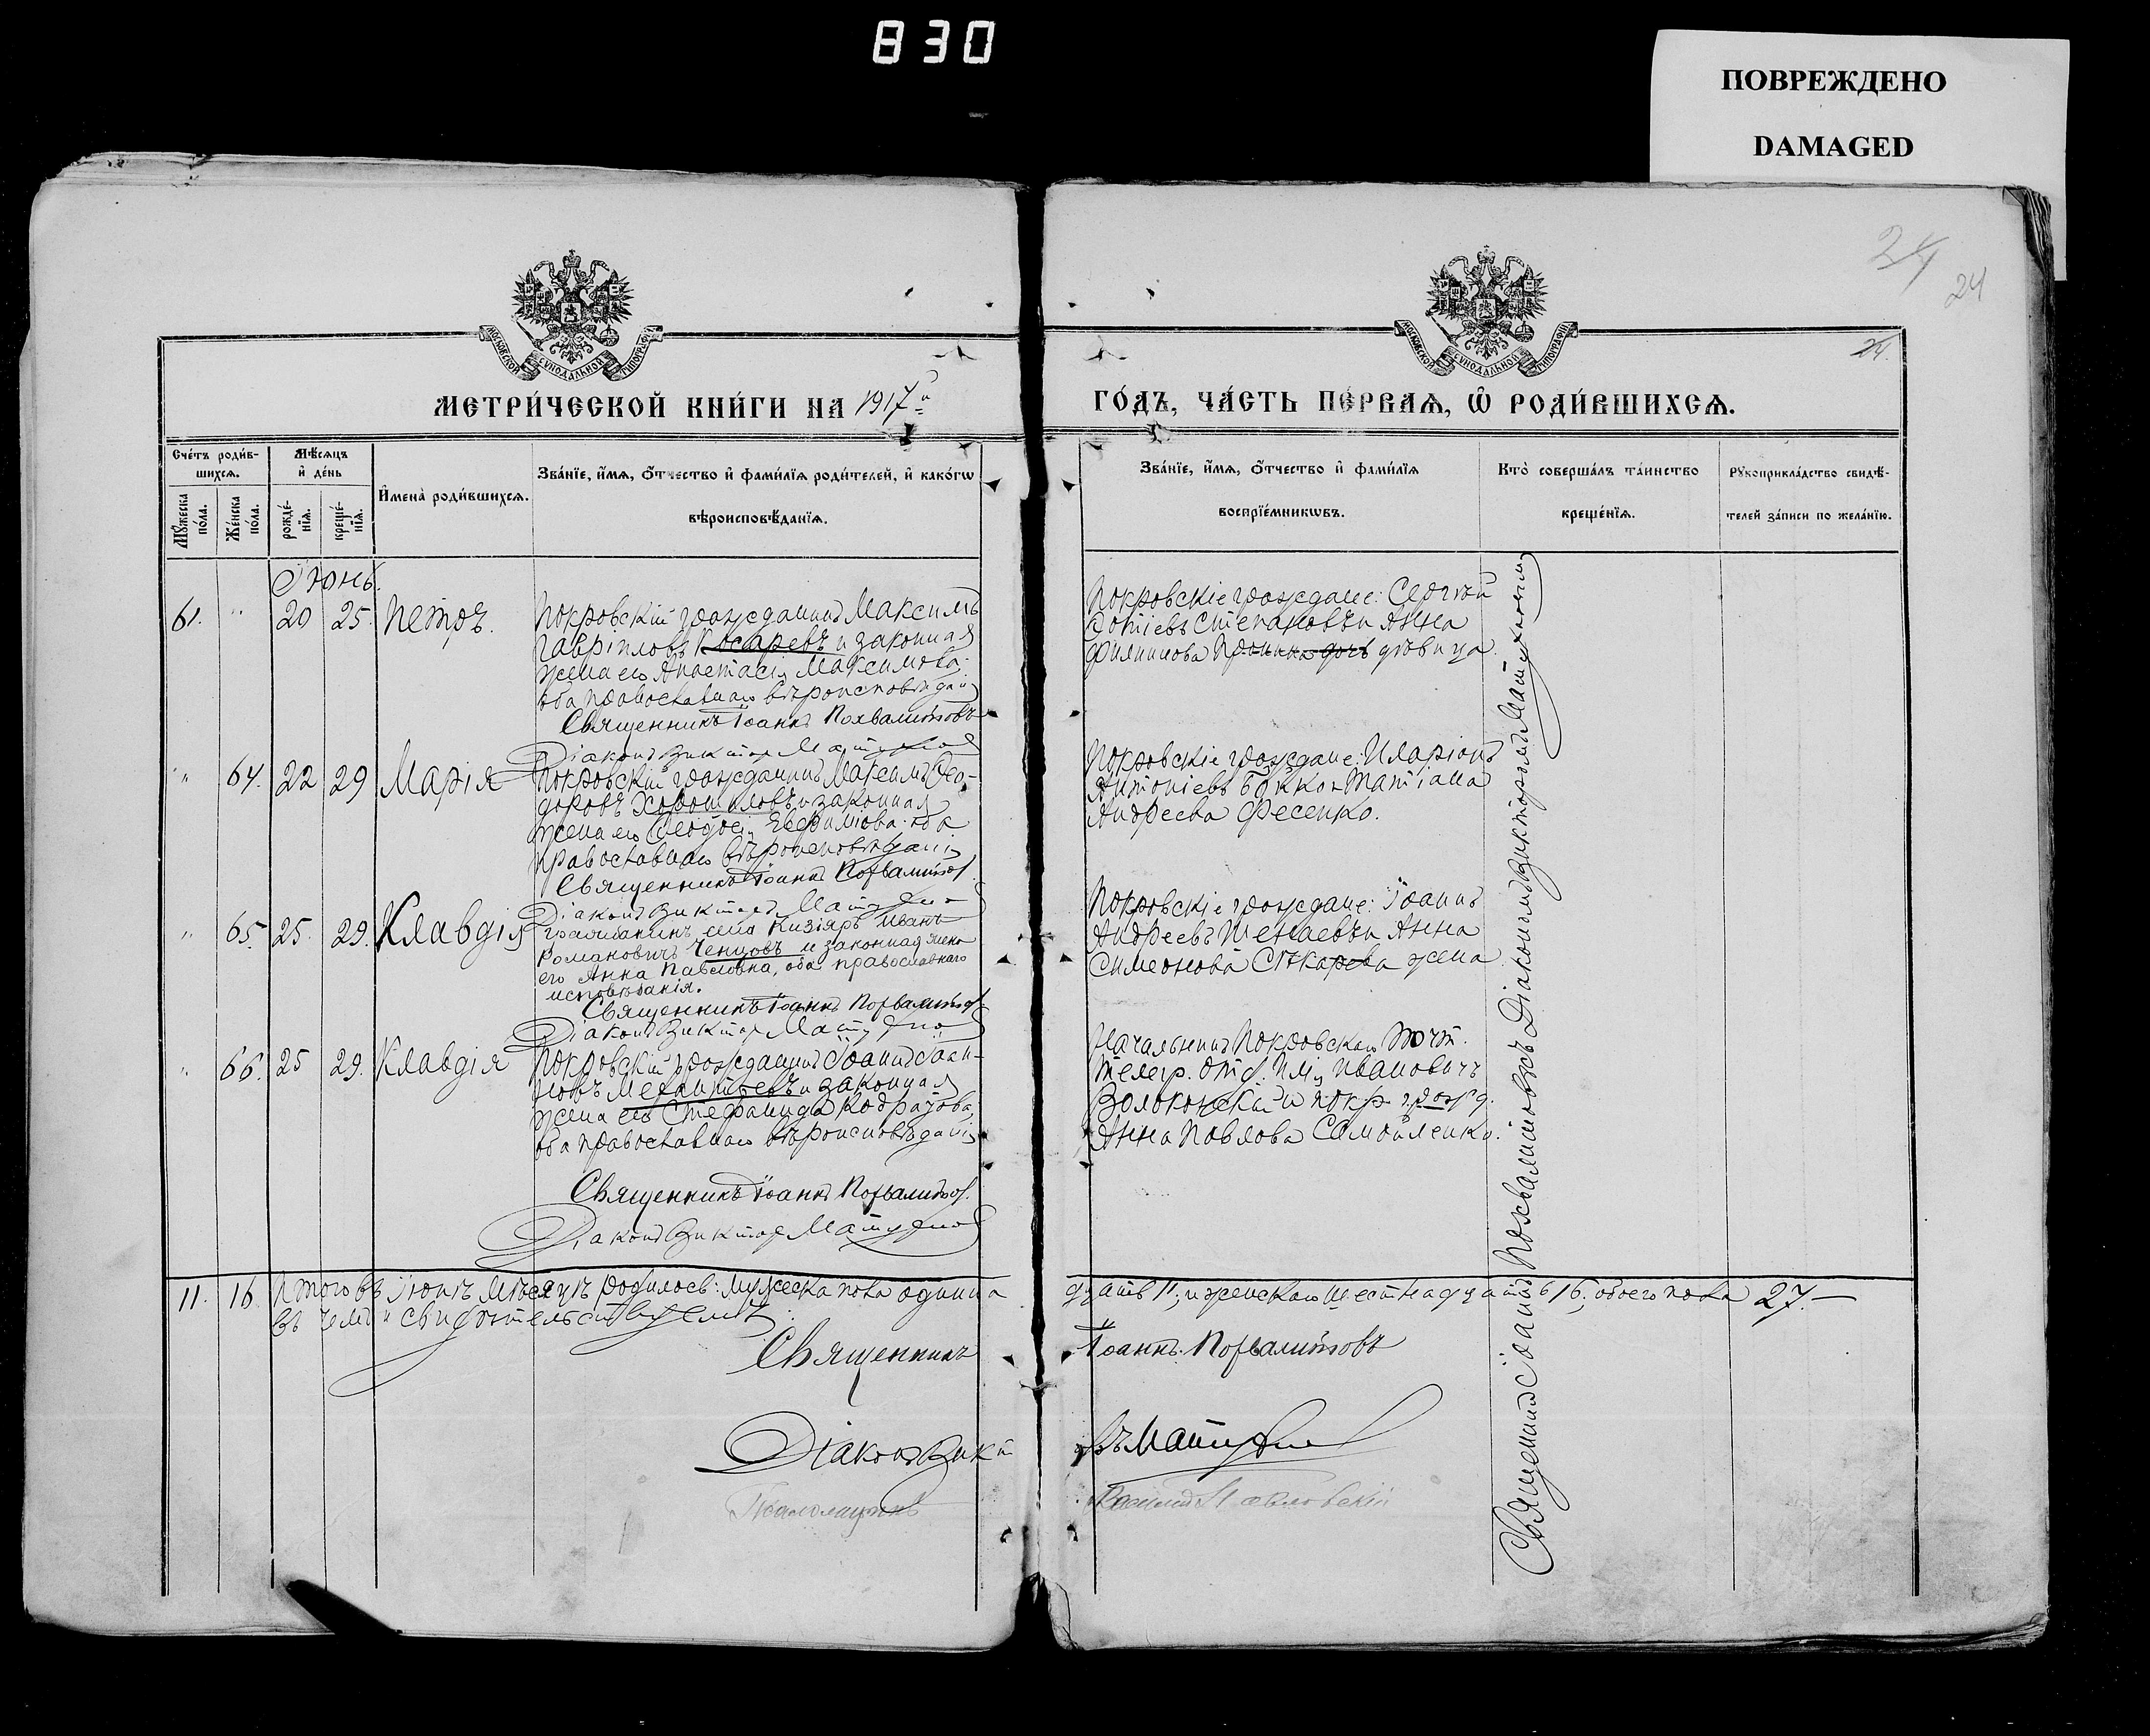 830
ПОВРЕЖДЕНО
DAMAGED
24
24
24.
МОСКОВСКОЙ СѴНОДАЛЬНОЙ ТИПОГРАФІИ
МОСКОВСКОЙ СѴНОДАЛЬНОЙ ТИПОГРАФІИ
МЕТРИ́ЧЕСКОЙ КНИ́ГИ НА 1917й
ГО́ДЪ, ЧА́СТЬ ПЕ́РВАѦ, Ѡ РОДИ́ВШИХСѦ.
Сче́тъ роди́в-
шихсѧ.
Мꙋ́жеска
по́ла.
Же́нска
по́ла.
Мѣ́сѧцъ
и҆ де́нь
рожде́-
нїѧ.
креще́-
нїѧ.
И҆мена̀ роди́вшихсѧ.
Зва́нїе, и҆́мѧ, ѻ҆́тчество и҆ фами́лїѧ роди́телей, и҆ како́гѡ
вѣроисповѣ́данїѧ.
Зва́нїе, и҆́мѧ, ѻ҆́тчество и҆ фами́лїѧ
воспрїе́мникѡвъ.
Кто̀ соверша́лъ та́инство
креще́нїѧ.
Рꙋкоприкла́дство свидѣ́-
телей за́писи по жела́нїю.
Іюнь.
61. " 20 25. Петръ.
Покровскій гражданинъ Максимъ
Гавріиловъ Косаревъ и законная
жена его Анастасія Максимова;
оба православнаго вѣроисповѣданія
Священникъ Іоаннъ Похвалитовъ
Діаконъ Викторъ Матухно
Покровскіе граждане: Сергѣй
Фотіевъ Степановъ и Анна
Филипова дѣвица.
" 64. 22 29 Марія
Покровскій гражданинъ Максимъ Ѳео-
доровъ Хорошиловъ и законная
жена его Ѳеодосія Евфимова: оба
православнаго вѣроисповѣданія
Священникъ Іоаннъ Похвалитов.
Діаконъ Викторъ Матухно
Покровскіе граждане: Иларіонъ
Антоніевъ Букко и Татіана
Андреева Фесенко.
" 65. 25. 29. Клавдія
гражданинъ села Кизіяръ Иванъ
Романовичъ Ченцовъ и законная жена
его Анна Павловна, оба православнаго
исповѣданія.
Священникъ Іоаннъ Похвалитов
Діаконъ Викторъ Матухно
Покровскіе граждане: Іоаннъ
Андреевъ и Анна
Симеонова жена
" 66. 25 29. Клавдія
Покровскій гражданинъ Іоаннъ Іоан-
новъ и законная
жена его Стефанида Кодратова,
оба православнаго вѣроисповѣданія
Священникъ Іоаннъ Похвалитов.
Діаконъ Викторъ Матухно
Начальникъ Покровскаго почт.
телегр. отд. Илія Ивановичъ
и покр. гражд.
Анна Павлова Самойленко.
Священникъ Іоаннъ Похвалитовъ съ Діакономъ Викторомъ Матухномъ
11. 16. Итого въ Іюнѣ мѣсяцѣ родилось: мужеска пола одинна
дцать 11; и женскаго шестнадцать 16; обоего пола 27.—
въ чемъ и свидѣтельствуемъ:
Священникъ Іоаннъ Похвалитовъ
Діаконъ Викторъ Матухно
Псаломщикъ